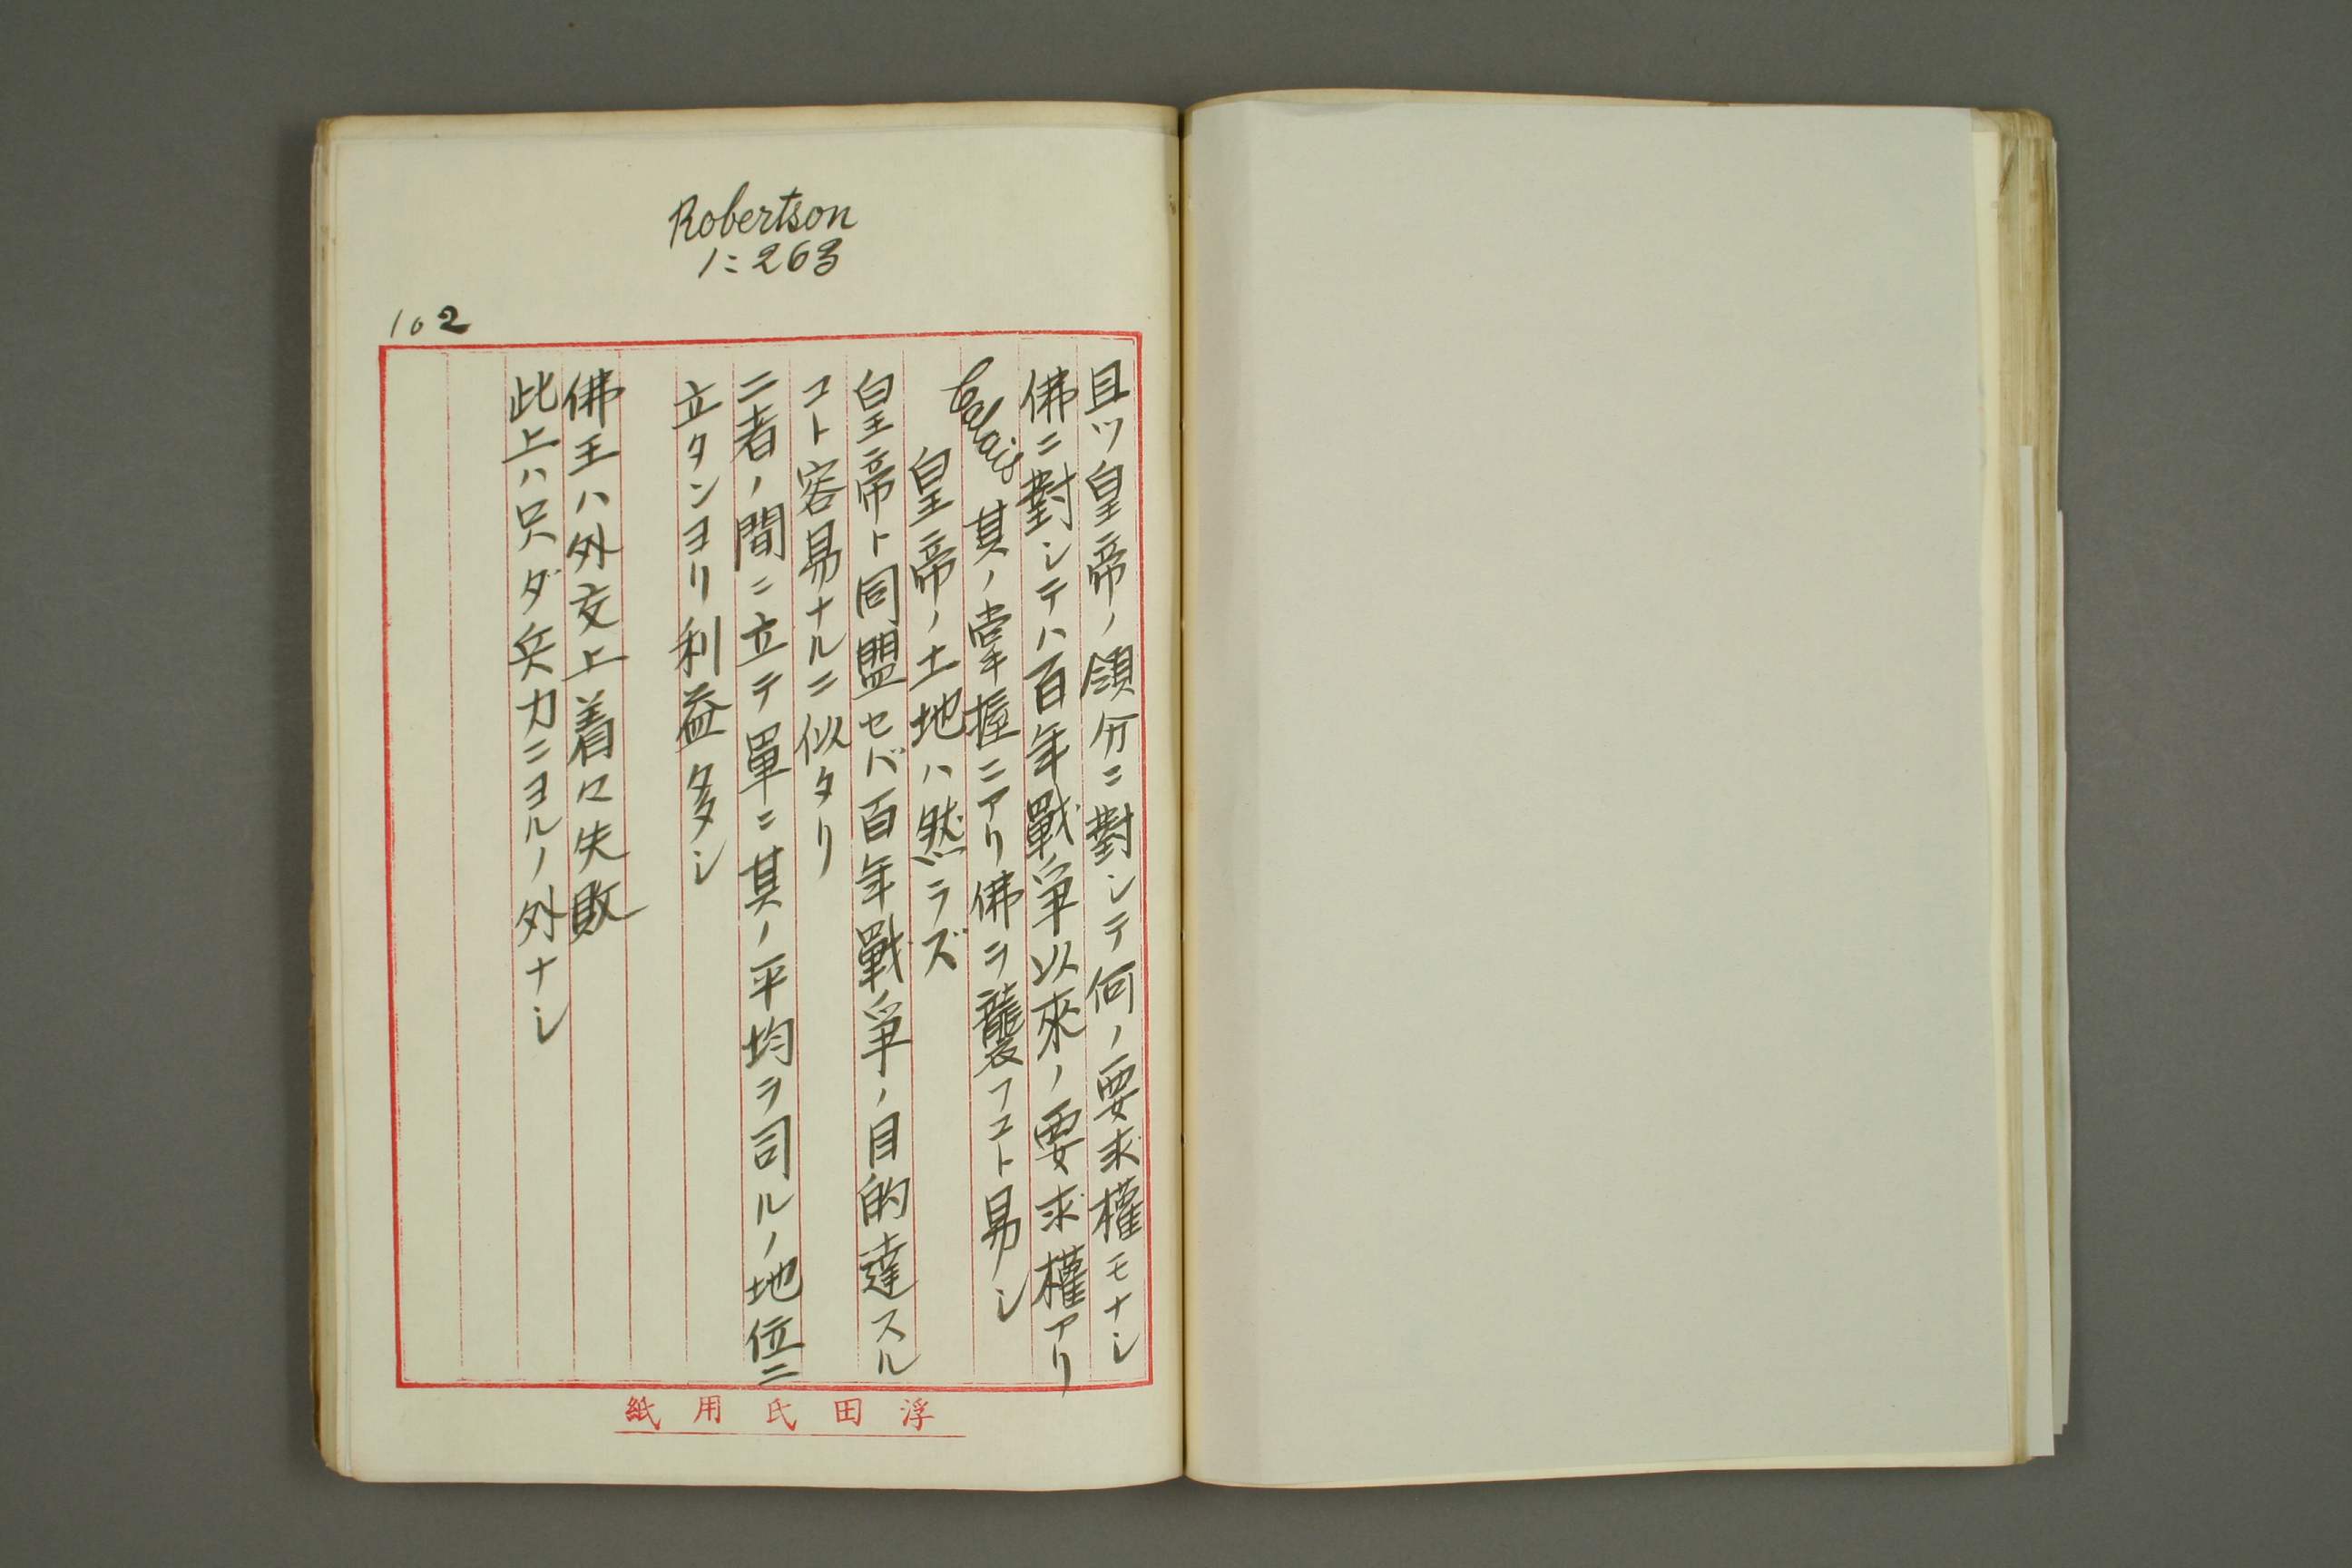 Robertson
1 : 263
102
且ツ皇帝ノ領分ニ對シテ何ノ要求權モナシ
佛ニ對シテハ百年戰爭以來ノ要求權アリ
Calais 其ノ掌握ニアリ佛ヲ襲フコト易シ
皇帝ノ土地ハ然ラズ
皇帝ト同盟セバ百年戰爭ノ目的達スル
コト容易ナルニ似タリ
二者ノ間ニ立テ單ニ其ノ平均ヲ司ルノ地位ニ
立タンヨリ利益多シ
佛王ハ外交上着々失敗
此上ハ只ダ兵力ニヨルノ外ナシ
浮田氏用紙